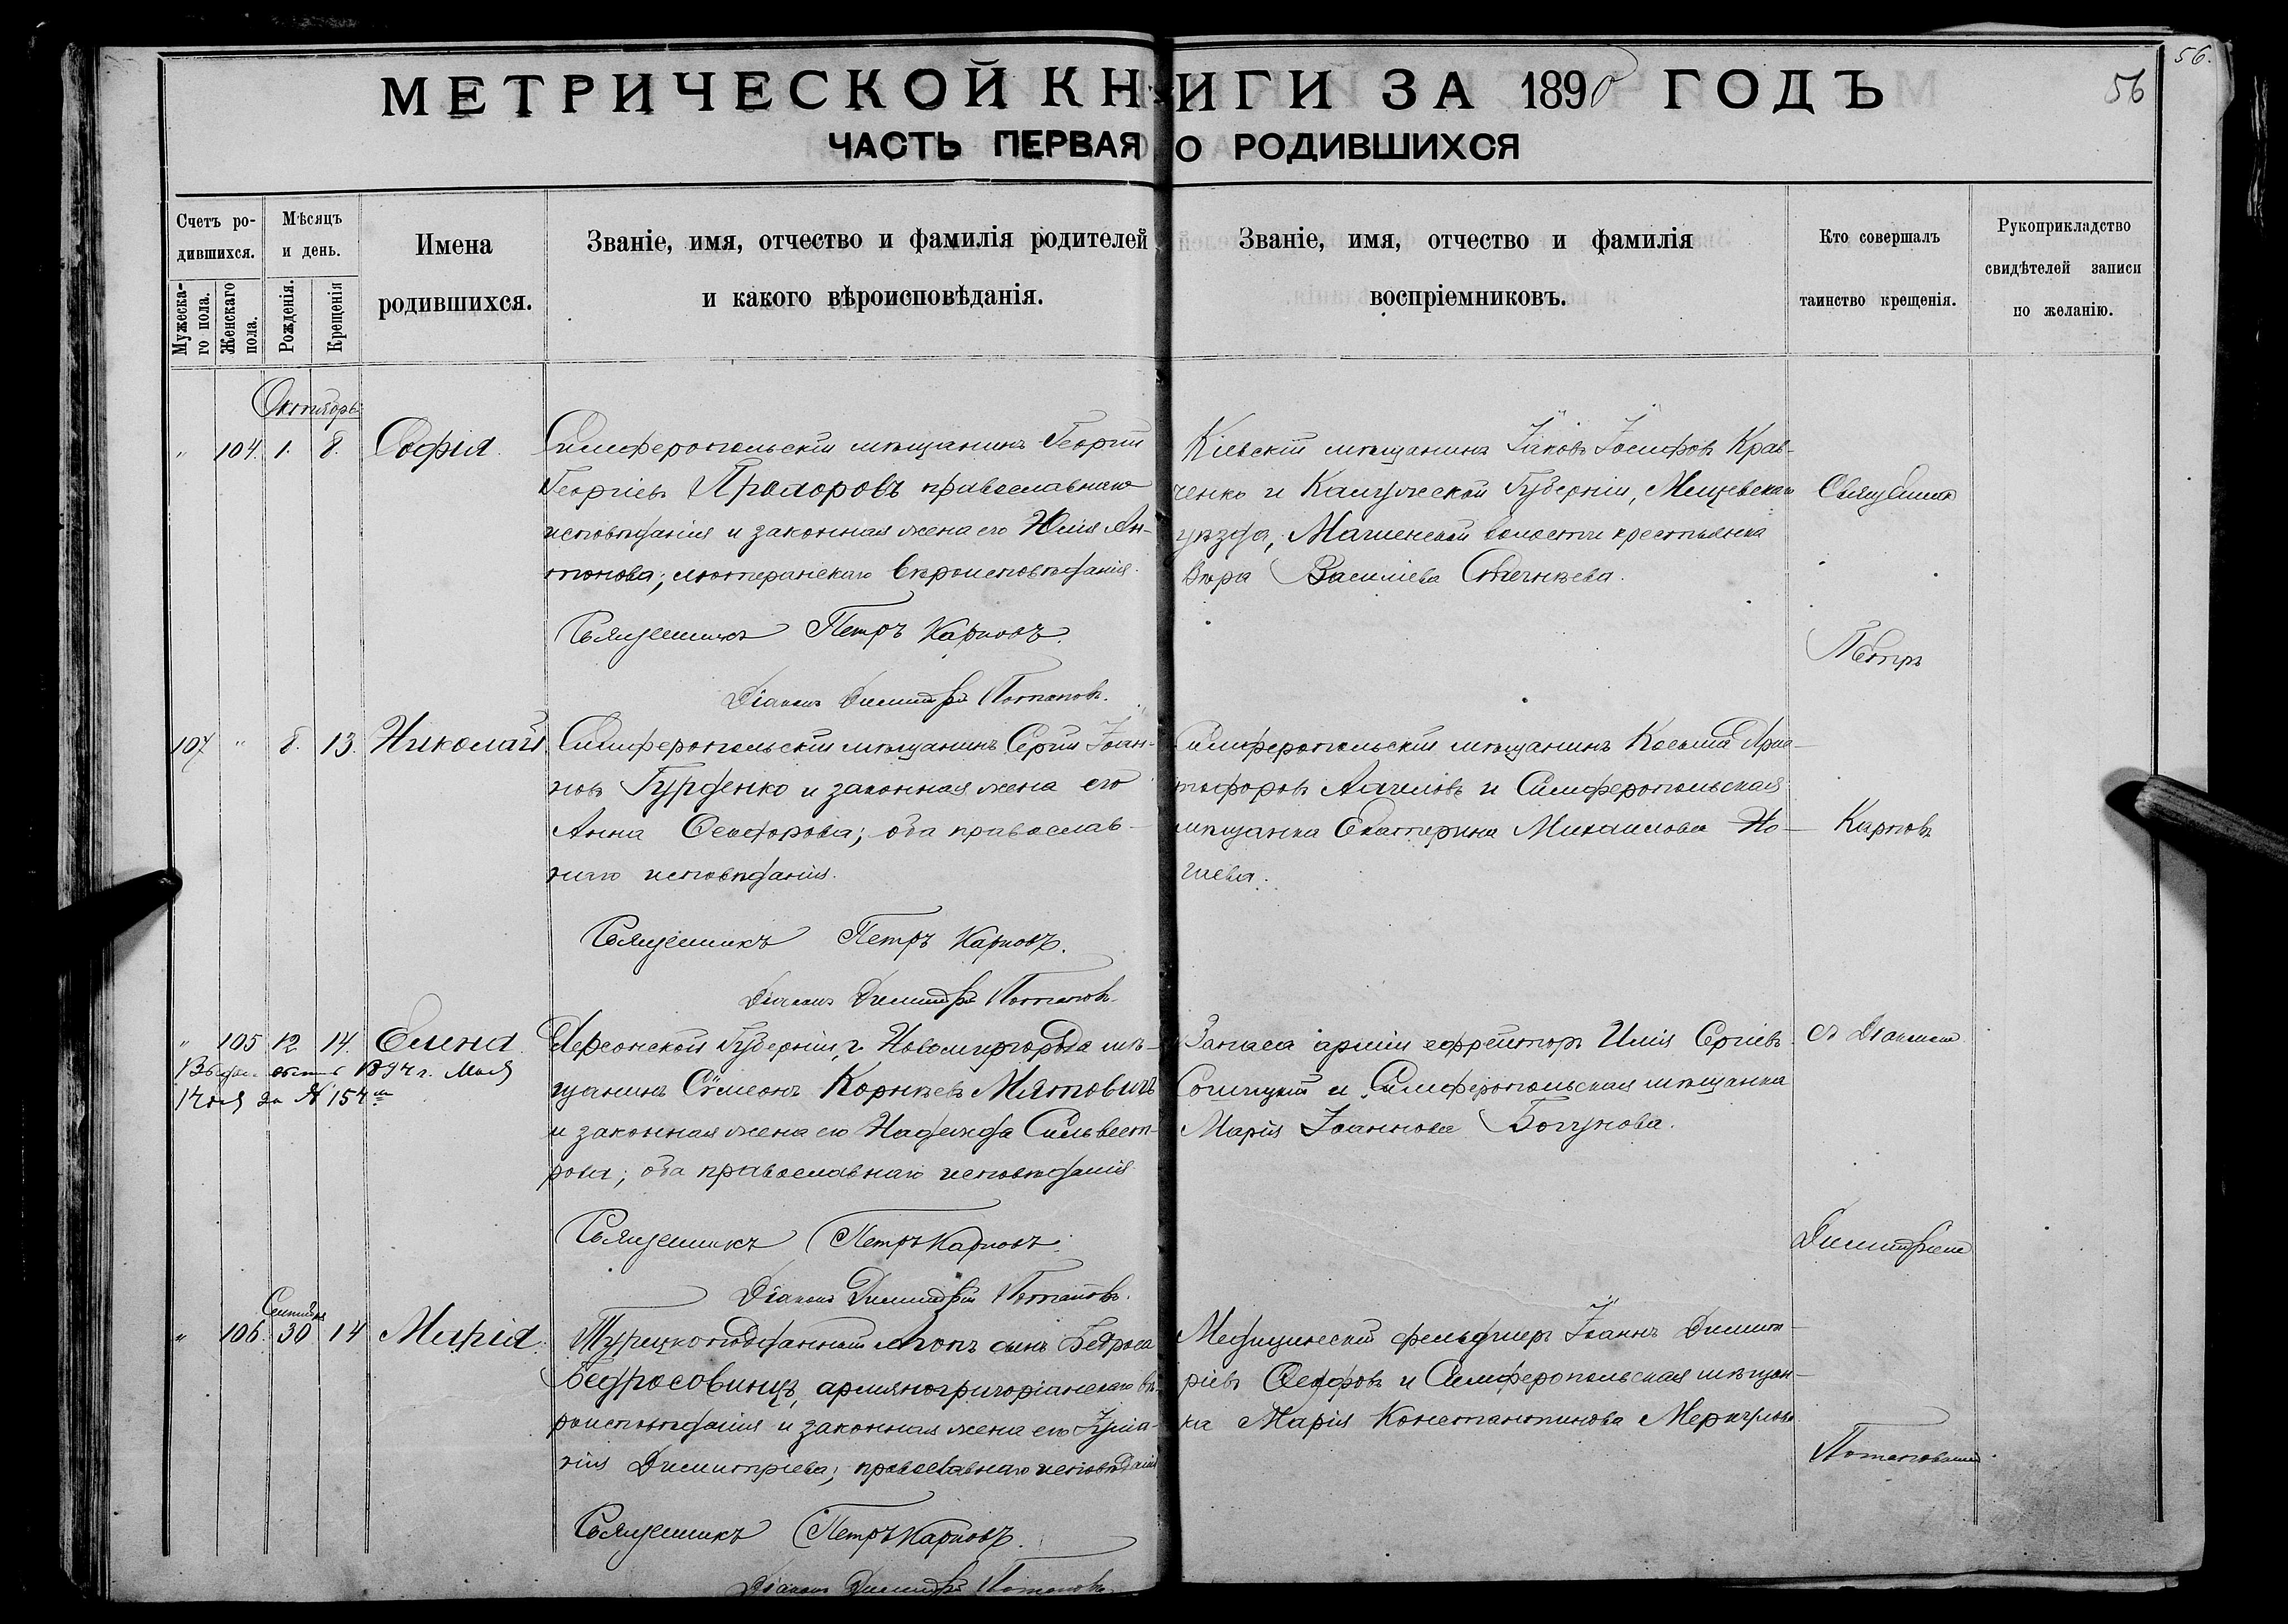 56.
56
МЕТРИЧЕСКОЙ КНИГИ ЗА 1890 ГОДЪ
ЧАСТЬ ПЕРВАЯ О РОДИВШИХСЯ
Счетъ ро-
дившихся.
Мужеска-
го пола.
Женскаго
пола.
Мѣсяцъ
и день.
Рожденія.
Крещенія
Имена
родившихся.
Званіе, имя, отчество и фамилія родителей
и какого вѣроисповѣданія.
Званіе, имя, отчество и фамилія
воспріемниковъ.
Кто совершалъ
таинство крещенія.
Рукоприкладство
свидѣтелей записи
по желанію.
Октябрь
" 104. 1. 8. Софія.
Симферопольскій мѣщанинъ Георгій
Георгіевъ православнаго
исповѣданія и законная жена его Юлія Ан-
тонова; лютеранскаго вѣроисповѣданія.
Священникъ Петръ Карповъ.
Діаконъ Димитрій Потаповъ.
Кіевскій мѣщанинъ Іаковъ Іосифовъ Крав-
ченко и Калужской Губерніи, Мещевскаго
уѣзда, волости крестьянка
Вѣра Васильева
Священникъ
Петръ
107 " 8. 13. Николай
Симферопольскій мѣщанинъ Сергій Іоан-
новъ Гурденко и законная жена его
Анна Ѳеодорова; оба православ-
наго исповѣданія.
Священникъ Петръ Карповъ.
Діаконъ Димитрій Потаповъ.
Симферопольскій мѣщанинъ Косьма
и Симферопольская
мѣщанка Екатерина Михаилова Но-
гаева.
Карповъ
" 105 12 14. Елена
1894 г. Мая
14 дня за № 154
Херсонской Губерніи, г. Новомиргорода мѣ-
щанинъ Сѵмеонъ Корнѣевъ Мятовичъ
и законная жена его Надежда Сильвест-
рова; оба православнаго исповѣданія
Священникъ Петръ Карповъ.
Діаконъ Димитрій Потаповъ.
Запаса арміи ефрейторъ Илія Сергіевъ
и Симферопольская мѣщанка
Марія Іоаннова Богунова.
съ Діакономъ
Димитріемъ
Сентября
" 106. 30 14 Марія.
Турецкоподданный сынъ Бедроса
Бедросовинцъ, армяногригоріанскаго вѣ-
роисповѣданія и законная жена его Іуліа-
нія Димитріева; православнаго исповѣданія
Священникъ Петръ Карповъ.
Діаконъ Димитрій Потаповъ.
Медицинскій фельдшеръ Іоаннъ Димит-
ріевъ Ѳедоровъ и Симферопольская мѣщан-
ка Марія Константинова Меркулова
Потаповымъ.